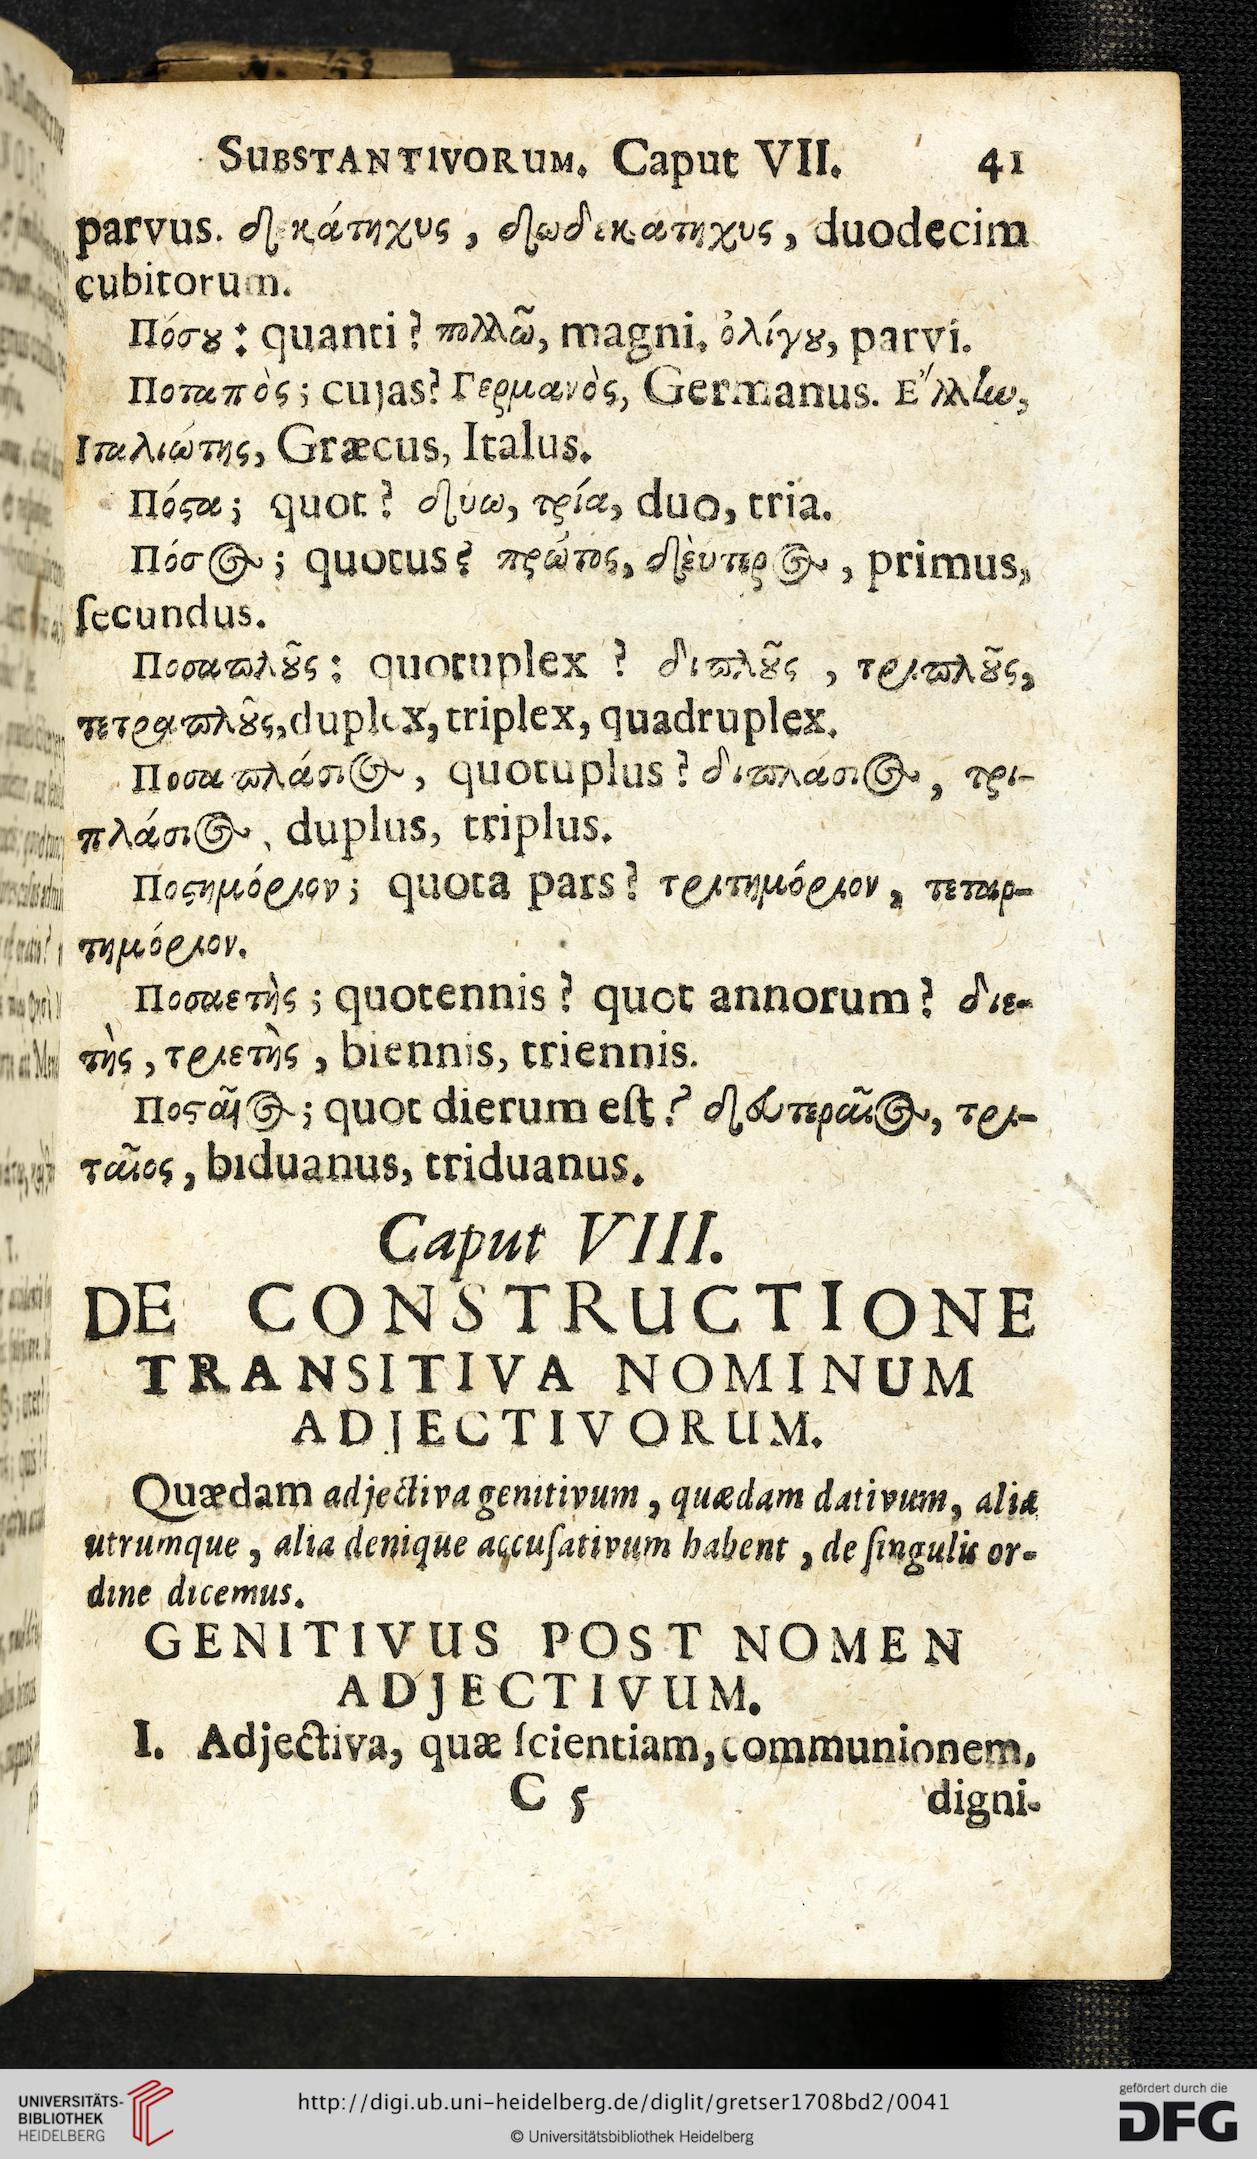 SUBSTANTIVORUM. Caput VII. 41
parvus. δεκάπηχυς, δωδεκαπηχυς, duodecim
cubitorum.
Πόσȣ: quanti? πολλῶ, magni, ὀλίγȣ, parvi.
Ποταπὸς; cujas? Γερμανὸς, Germanus. Ἕλλην,
Ιταλιώτης, Græcus, Italus.
Πόσα; quot? δύω, τρία, duo, tria.
Πόσος; quotus? πρώτος, δεύτερος, primus,
ſecundus.
Ποσαπλȣ̃ς: quotuplex? διπλȣ̃ς, τριπλȣ̃ς,
τετραπλȣ̃ς, duplex, triplex, quadruplex.
Ποσαπλάσιος, quotuplus? διπλάσιος, τρι-
πλάσιος, duplus, triplus.
Ποστημόριον; quota pars? τριτημόριον, τεταρ-
τημόριον.
Ποσαετὴς; quotennis? quot annorum? διε-
τὴς, τριετὴς, biennis, triennis.
Ποσταῖος; quot dierum eſt? δευτεραῖος, τρι-
ταῖος, biduanus, triduanus.
Caput VIII.
DE CONSTRUCTIONE
TRANSITIVA NOMINUM
ADJECTIVORUM.
Quædam adjectiva genitivum, quædam dativum, alia
utrumque, alia denique accuſativum habent, de ſingulis or-
dine dicemus.
GENITIVUS POST NOMEN
ADJECTIVUM.
I. Adjectiva, quæ ſcientiam, communionem,
C 5 digni-
UNIVERSITÄTS-
BIBLIOTHEK
HEIDELBERG
http://digi.ub.uni-heidelberg.de/diglit/gretser1708bd2/0041
© Universitätsbibliothek Heidelberg
gefördert durch die
DFG